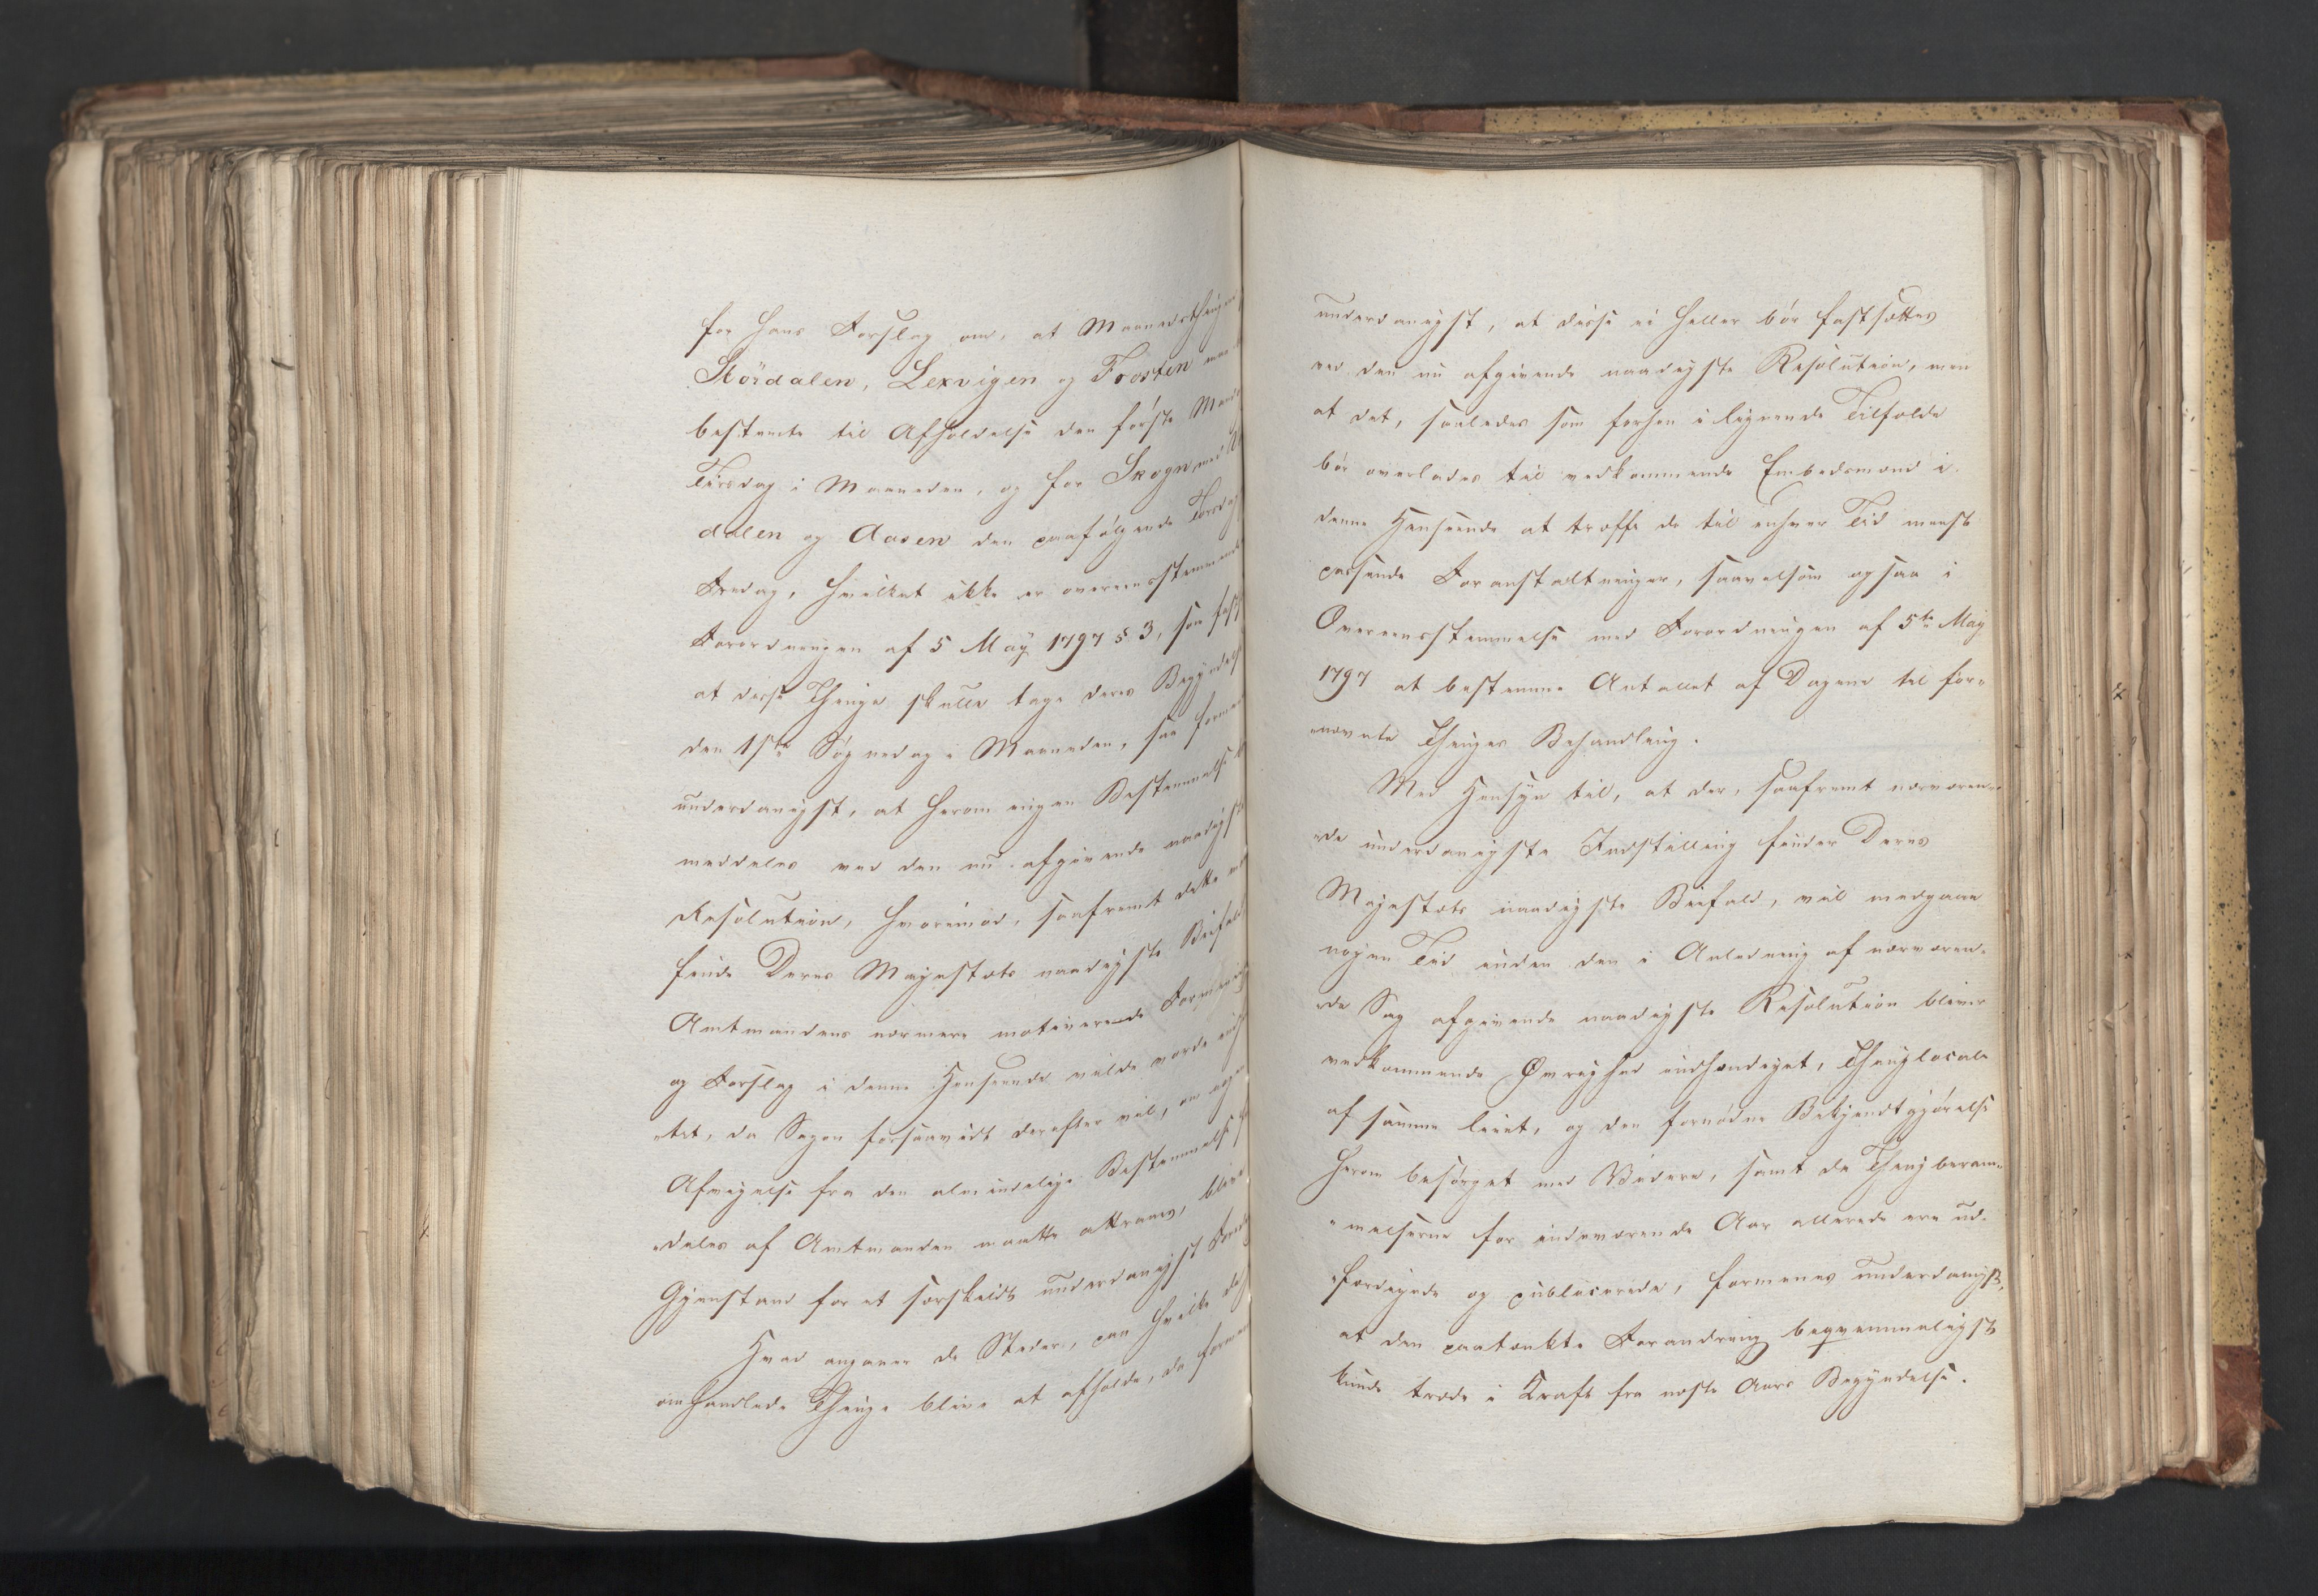 for hans Forslag om, at Maanedsthinge
Stördalen, Lexvigen og Frosten maa
bestemte til Afholdelse den første Mand
Tirsdag i Maaneden, og for Skogn, med
dalen og Aasen den paafølgende Torsdag
Fredag, hvilket ikke er overeensstemmende
Forordningen af 5 May 1797 § 3, som fast
at disse Thinge skulle tage deres Begyndelse
den 1ste Søgnedag i Maaneden, saa formene
underdanigst, at herom ingen Bestemmelse
meddeles ved den nu afgivende naadigste
Resolution, hvorimod, saafremt dette maa
finde Deres Majestæts naadigste Bifald
Amtmandens nærmere motiverende Formening
og Forslag i denne Henseende vilde vorde indh
„tet, da Sagen forsaavidt derefter vil, om nogen
Afvigelse fra den almindelige Bestemmelse
„deles af Amtmanden maatte attraaes, blive
Gjenstand for et særskildt underdanigst Fore
Hvad angaaer de Steder, paa hvilke de
omhandlede Thinge blive at afholde, da formene
underdanigst, at disse ei heller bør fastsættes
ved den nu afgivende naadigste Resolution, men
at det, saaledes som forhen i lignende Tilfælde
bør overlades til vedkommende Embedsmænd i
denne Henseende at træffe de til enhver Tid meest
passende Foranstaltninger, saavelsom ogsaa i
Overeensstemmelse med Forordningen af 5te May
1797 at bestemme Antallet af Dagene til for„
„nævnte Thinges Behandling.
Med Hensyn til, at der, saafremt nærværen„
„de underdanigste Indstilling finder Deres
Majestæts naadigste Bifald, vil medgaae
nogen Tid inden den i Anledning af nærværen„
„de Sag afgivende naadigste Resolution bliver
vedkommende Øvrighed indhændiget, Thinglocale
af samme leiet, og den fornødne Bekjendtgjørelse
herom besørget med Videre, samt da Thingberam„
„melserne for indeværende Aar allerede ere ud„
„færdigede og publicerede, formenes underdanigst,
at den paatænkte Forandring beqvemmeligst
kunde træde i Kraft fra næste Aars Begyndelse.